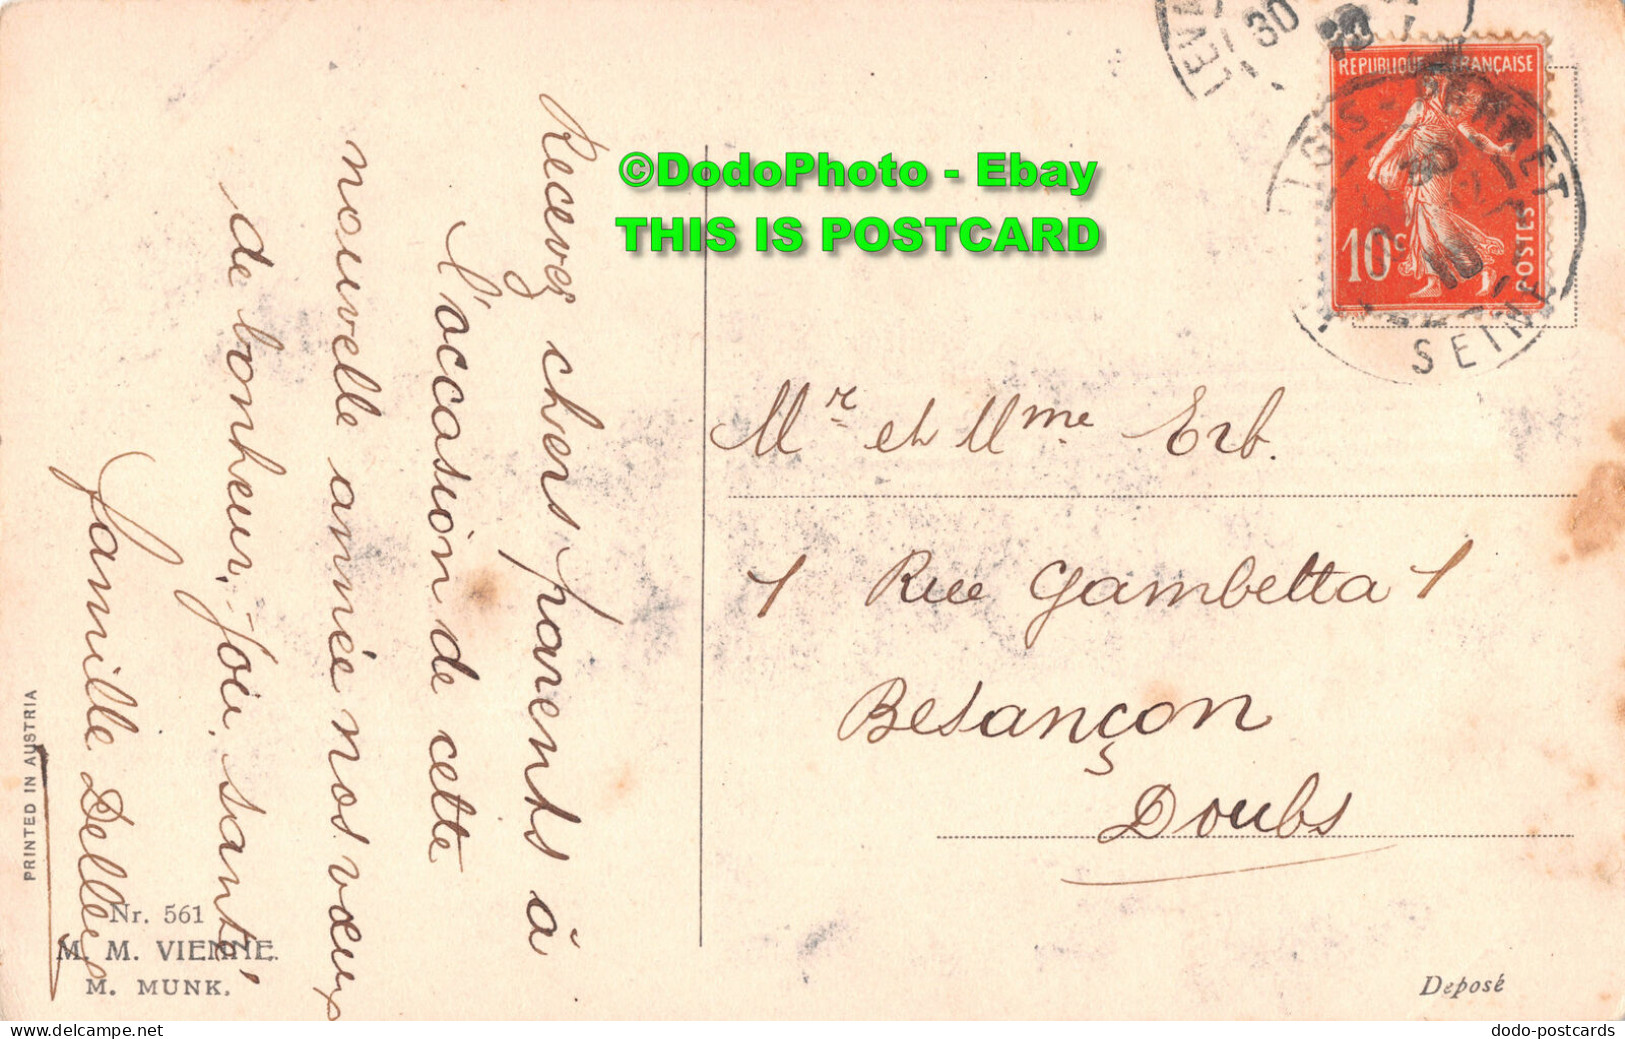 Recevez chers parents à
l'occasion de cette
nouvelle année nos vœux
de bonheur, joie, santé
Famille Delley
©DodoPhoto - Ebay
THIS IS POSTCARD
REPUBLIQUE FRANÇAISE
10c
POSTES
LEVA
30
PERRET
30
SEINE
Mr et Mme Erb.
1 Rue Gambetta 1
Besançon
Doubs
PRINTED IN AUSTRIA
Nr. 561
M. M. VIENNE.
M. MUNK.
Deposé
delcampe.net
dodo-postcards